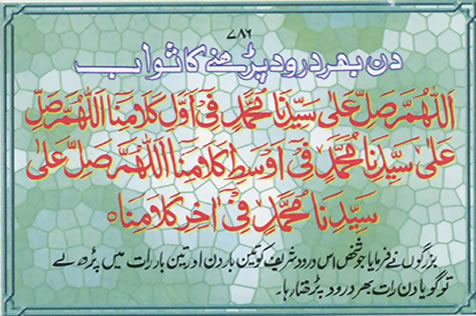 ۷۸۶
دن بھر درود پڑھنے کا ثواب
اَللّٰهُمَّ صَلِّ عَلٰى سَيِّدِنَا مُحَمَّدٍ فِىْ اَوَّلِ كَلَامِنَا اَللّٰهُمَّ صَلِّ
عَلٰى سَيِّدِنَا مُحَمَّدٍ فِىْ اَوْسَطِ كَلَامِنَا اَللّٰهُمَّ صَلِّ عَلٰى
سَيِّدِنَا مُحَمَّدٍ فِىْ اٰخِرِ كَلَامِنَا ۝
بزرگوں نے فرمایا جو شخص اس درود شریف کو تین بار دن اور تین بار رات میں پڑھ لے
تو گویا دن رات بھر درود پڑھتا رہا۔